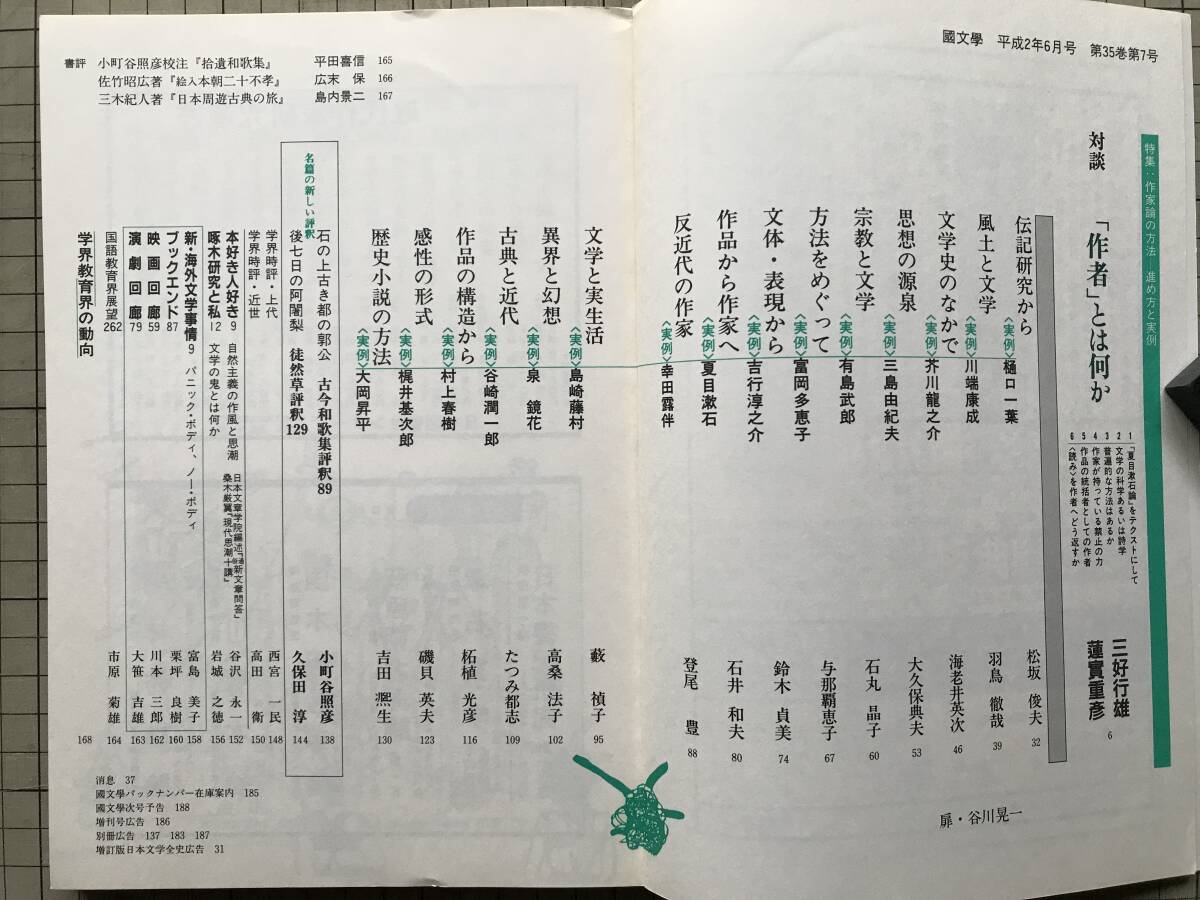 國文學 平成2年6月号 第35巻第7号
特集：作家論の方法―進め方と実例
対談 「作者」とは何か
1 「夏目漱石論」をテクストにして
2 文学の科学あるいは詩学
3 普遍的な方法はあるか
4 作家が持っている禁止の力
5 作品の統括者としての作者
6 〈読み〉を作者へどう返すか
三好行雄
蓮實重彥 6
伝記研究から〈実例〉樋口一葉 松坂俊夫 32
風土と文学〈実例〉川端康成 羽鳥徹哉 39
文学史のなかで〈実例〉芥川龍之介 海老井英次 46
思想の源泉〈実例〉三島由紀夫 大久保典夫 53
宗教と文学〈実例〉有島武郎 石丸晶子 60
方法をめぐって〈実例〉富岡多恵子 与那覇恵子 67
文体・表現から〈実例〉吉行淳之介 鈴木貞美 74
作品から作家へ〈実例〉夏目漱石 石井和夫 80
反近代の作家〈実例〉幸田露伴 登尾豊 88
扉・谷川晃一
文学と実生活〈実例〉島崎藤村 藪禎子 95
異界と幻想〈実例〉泉鏡花 高桑法子 102
古典と近代〈実例〉谷崎潤一郎 たつみ都志 109
作品の構造から〈実例〉村上春樹 柘植光彦 116
感性の形式〈実例〉梶井基次郎 磯貝英夫 123
歴史小説の方法〈実例〉大岡昇平 吉田凞生 130
名篇の新しい評釈
石の上古き都の郭公 古今和歌集評釈89 小町谷照彦 138
後七日の阿闍梨 徒然草評釈129 久保田淳 144
学界時評・上代 西宮一民 148
学界時評・近世 高田衛 150
本好き人好き9 自然主義の作風と思潮 日本文章学院編述『通信新文章問答』 桑木厳翼『現代思潮十講』 谷沢永一 152
啄木研究と私12 文学の鬼とは何か 岩城之徳 156
新・海外文学事情9 パニック・ボディ、ノー・ボディ 富島美子 158
ブックエンド87 栗坪良樹 160
映画回廊59 川本三郎 162
演劇回廊79 大笹吉雄 163
国語教育界展望262 市原菊雄 164
学界教育界の動向 168
書評 小町谷照彦校注『拾遺和歌集』 平田喜信 165
佐竹昭広著『絵入本朝二十不孝』 広末保 166
三木紀人著『日本周遊古典の旅』 島内景二 167
消息 37
國文學バックナンバー在庫案内 185
國文學次号予告 188
増刊号広告 186
別冊広告 137 183 187
増訂版日本文学全史広告 31